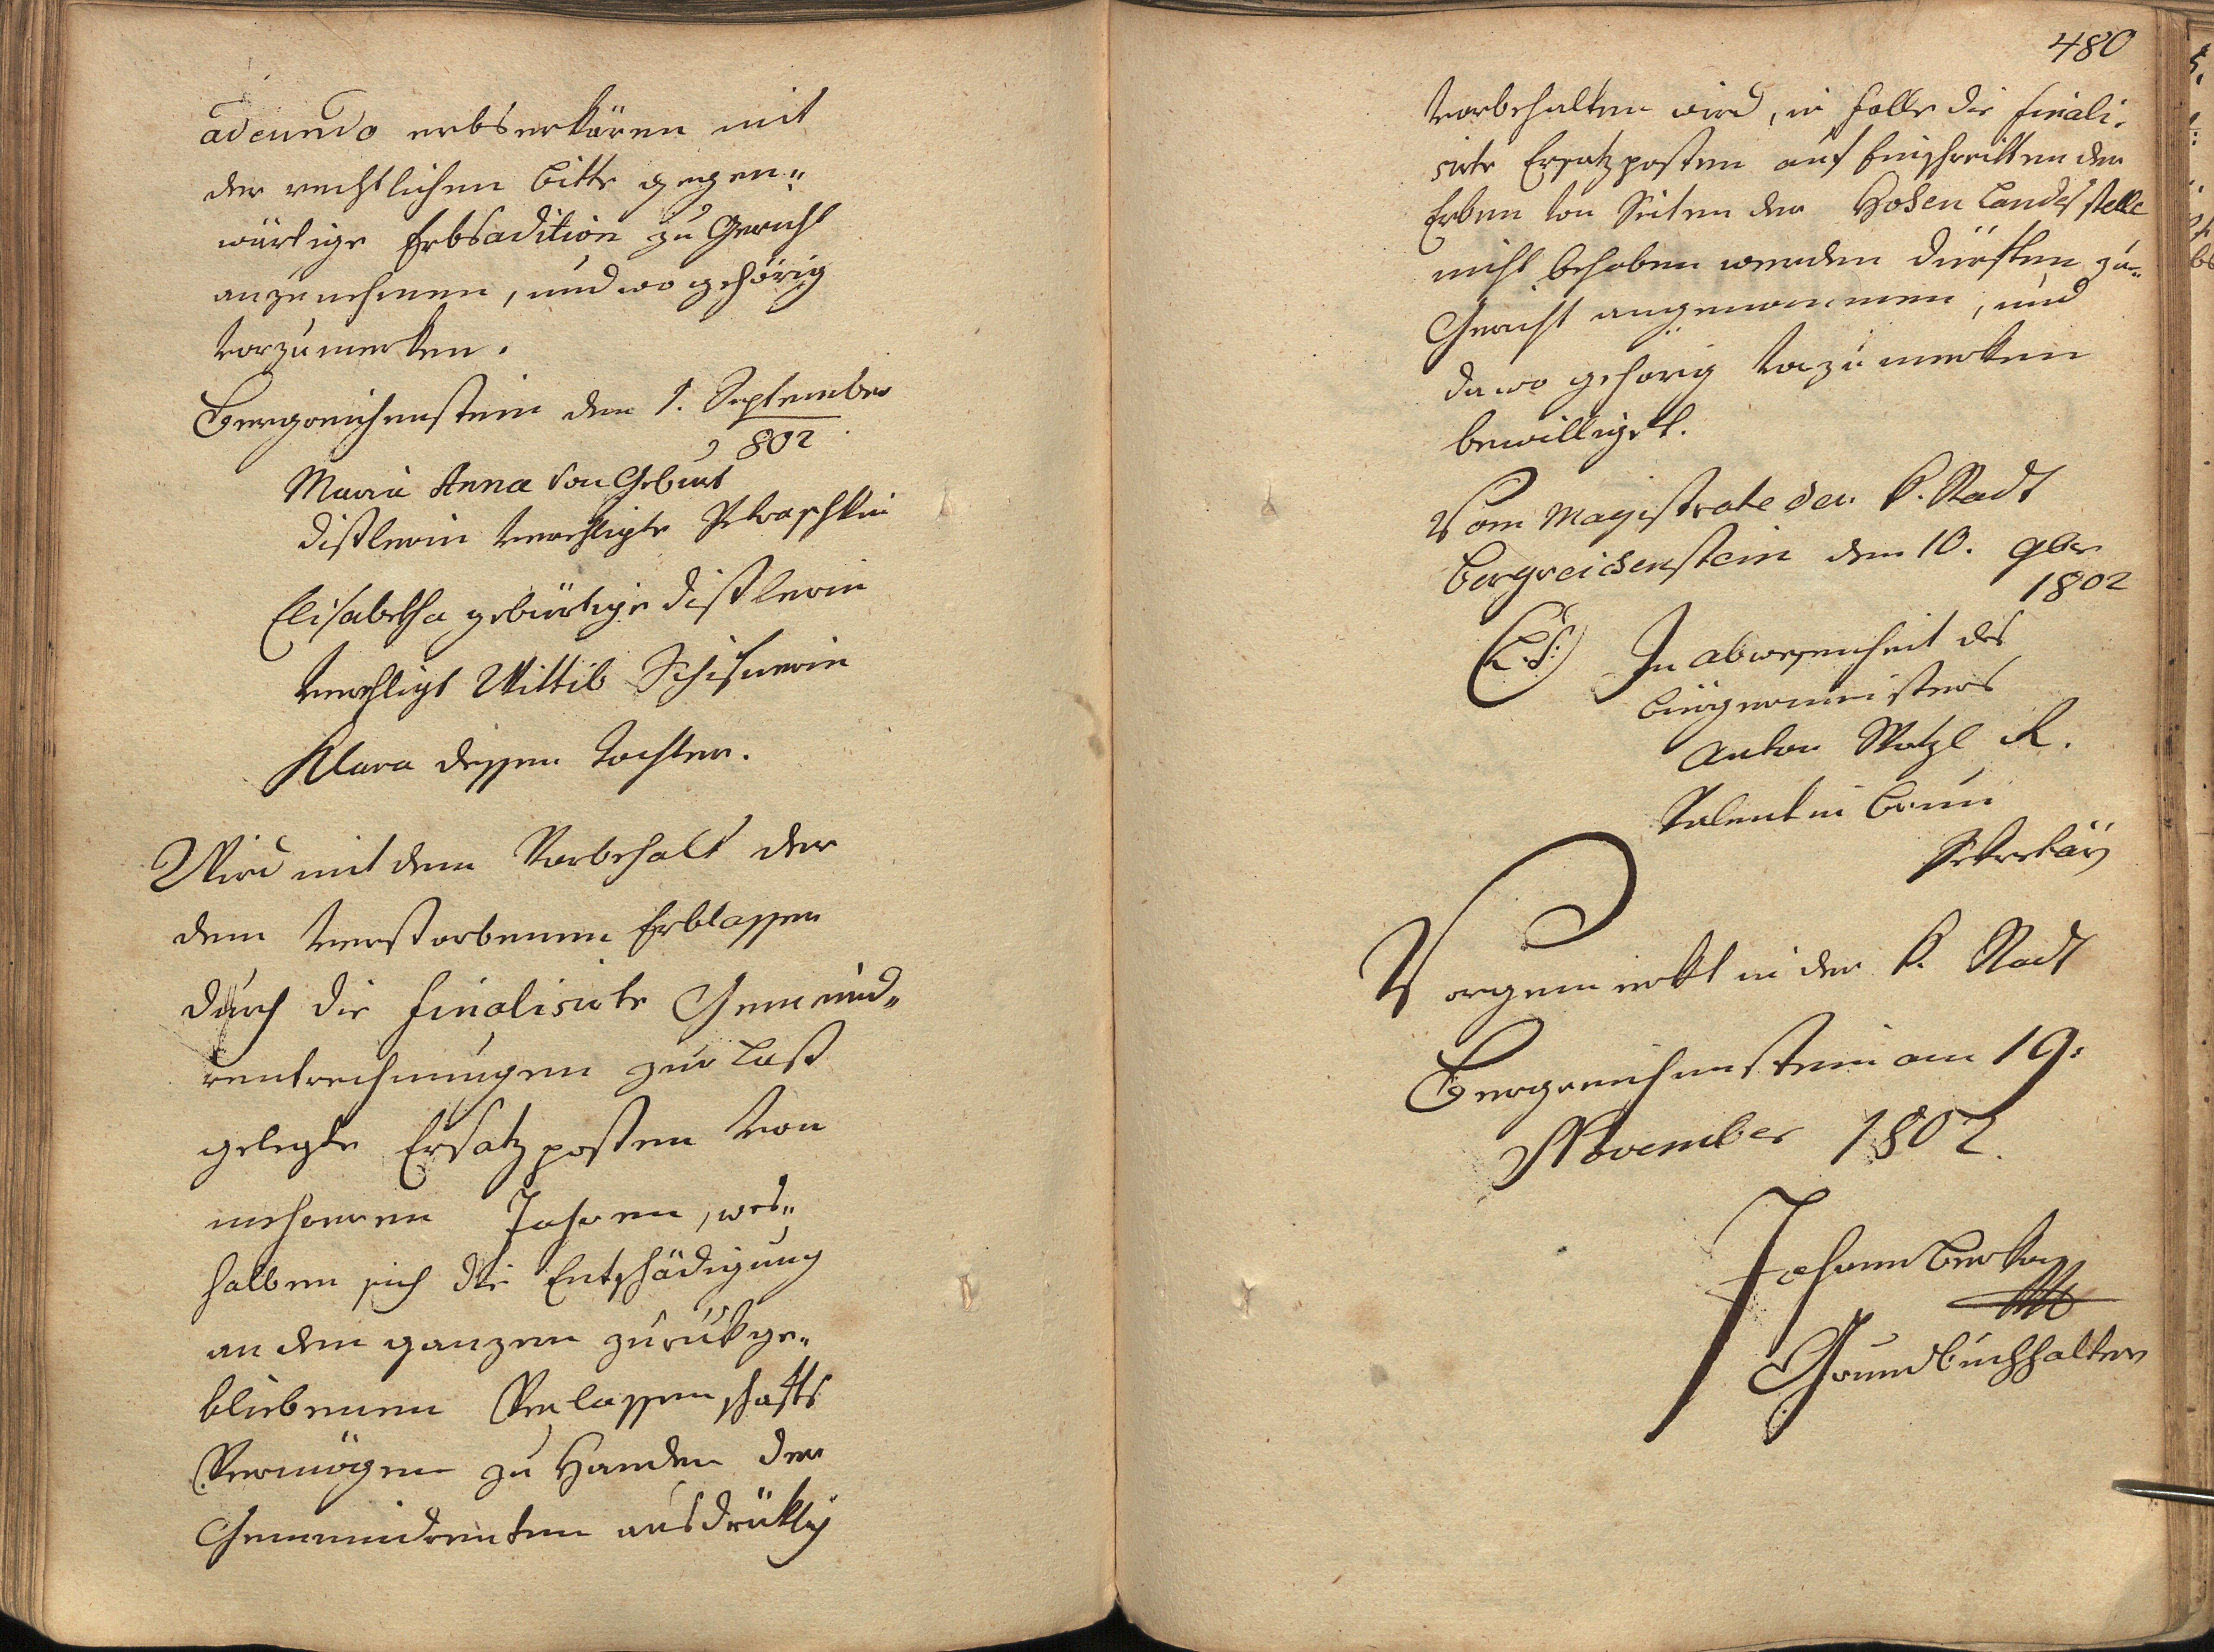 adeundo erbserklären mit
der rechtlichen bitte gegen„
wärtige Erbsadition zu Gericht
anzunehmen, und wo gehörig
vorzumerken.
Bergreichenstein den 1. September
802
Maria Anna von Geburt
Distlerin verehligte
Elisabetha gebürtige Distlerin
verehligt Wittib
Klara dessen Tochter.
Wird mit dem Vorbehalt der
dem verstorbenen Erblassen
durch die finalisirte Gemeind„
rentrechnungen zur Last
gelegte Ersatzposten von
mehreren Jahren, wes„
halben sich die Entschädigung
an dem ganzen zurükge„
bliebenen Verlassenschafts
Vermögen zu Handen der
Gemeindrenten ausdrüklich
480
vorbehalten wird, in Falle die finali„
sirte Ersatzposten auf Einschreitten der
Erben von Seiten der Hohen Landesstelle
nicht behoben werden dürften zu„
Gericht angenommen, und
da wo gehörig vorzumerken
bewilliget.
Vom Magistrate der k. Stadt
Bergreichenstein den 10. 9ber
1802
(L.S:) In abwesenheit des
bürgermeisters
Anton Watzl R.
Valentin
Sekretär
Vorgemerkt in der k. Stadt
Bergreichenstein am 19:
November 1802.
Johann
Grundbuchhalter